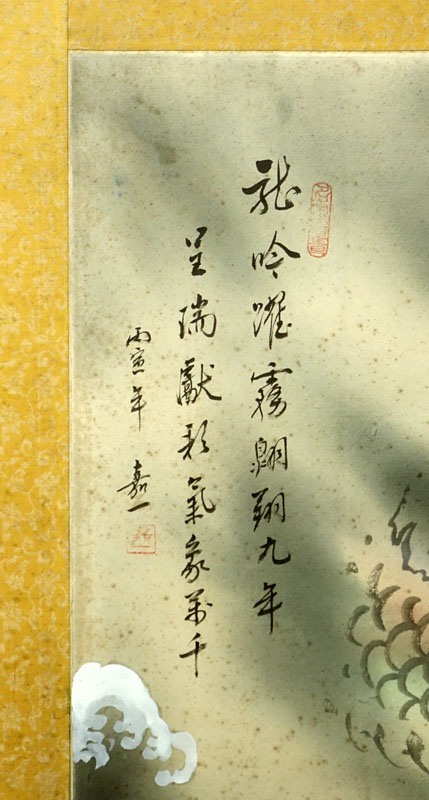 龍吟躍霧翱翔九年
呈瑞獻彩氣象萬千
丙寅年 嘉一